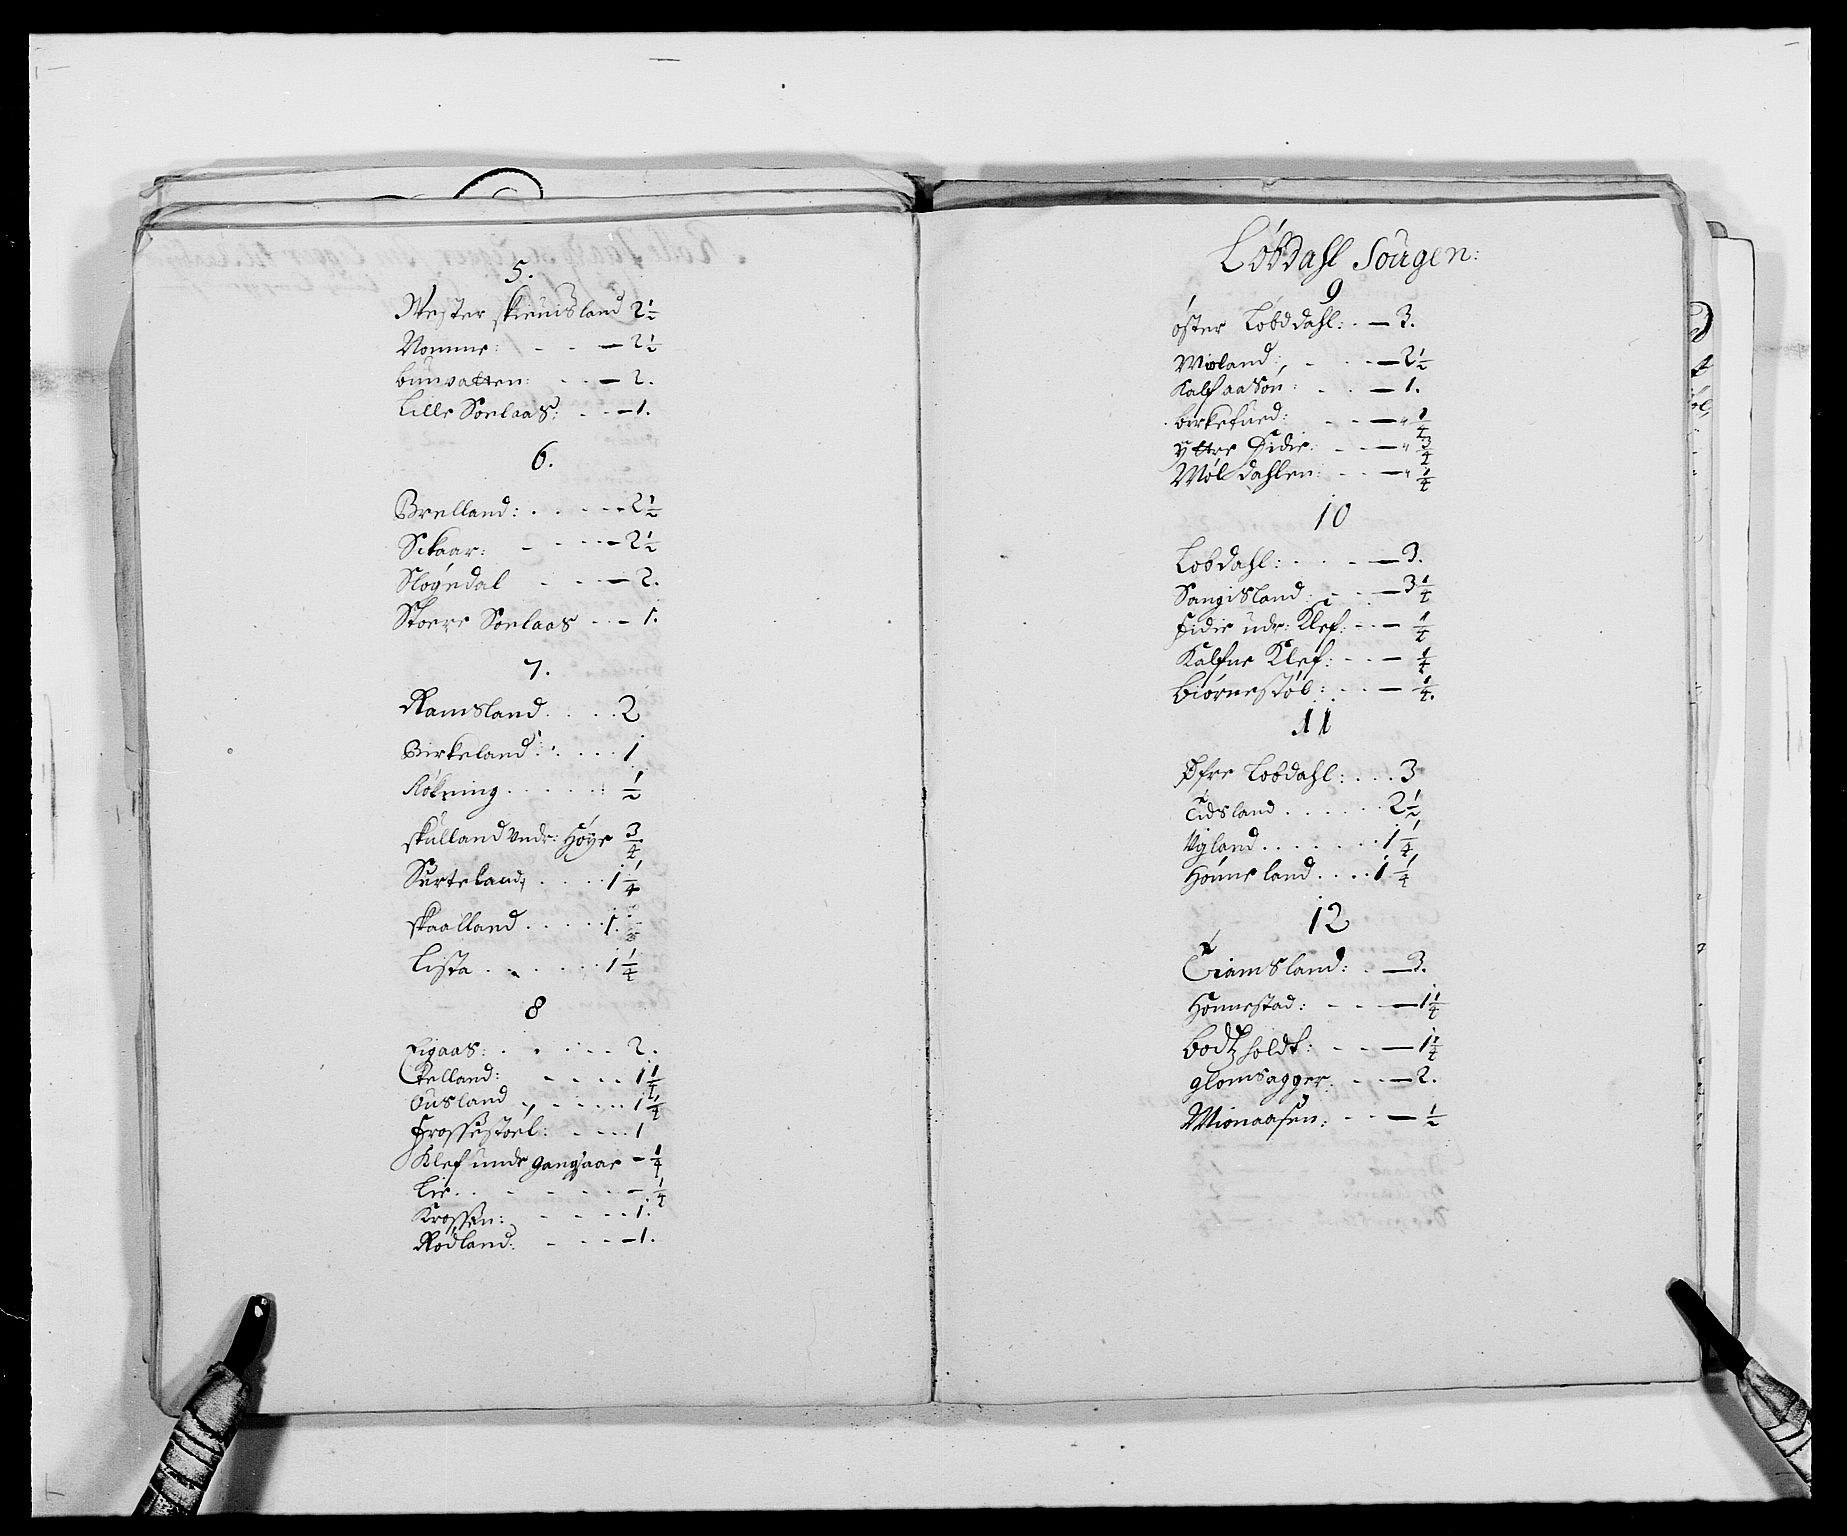 5.
Wester skieuisland 2½
Nomme: - - - 2½
bunvatten: - - - 2.
Lille Sonlaas: - - - 1.
6.
Brelland: . . . . . 2½
Sikaar: - - - - 2½
Sløgedal - - - - 2.
Stoere Sonlaas - - - 1.
7.
Ramsland . . . . 2
Birkeland . . . . . 1
Røkning . . . . . : ½
skulland undr: Høye ¾
Surteland, . . . . 1¼
skaalland . . . . . 1.
Lista . . . . . . . 1¼
8
Eigaas: . . . . . . 2.
Telland: - - - - 1¼
Ousland - - - - . . 1¼
Frossestoel: - - - - 1
Klef unde gangsaae - ¼
Lie . . - - - - - - ¼
Krossen: - - - . . 1.
Rødland: - - - - 1.
Løbdahl Sougen:
9
øster Løbddahl: . - 3.
Mioland: - - - - 2½
Kalfaason: - - - 1.
birkefued: - - - - " ¼
yttre Fidie: - - - " ¾
Møldahlen: - - - " ¼
10
Lobdahl: - . . - - 3.
Sangisland: - - - 3¼
Fidie udr: Klef: - - - ¼
Kalfue Klef: - - - ¼
biørnestøl: - - - ¼.
11
Øfre Lobdahl: . . . 3
Tidsland . . . . . . 2½
Vgland . . . . . . . 1¼
Honneland . . . . 1¼
12
Tiamsland: . - 3.
Honnestad: - - - - 1¼
bodtzholdt: - - - - 1¼
glomsagger. - - - 2.
Mionaasen: - - - - ½